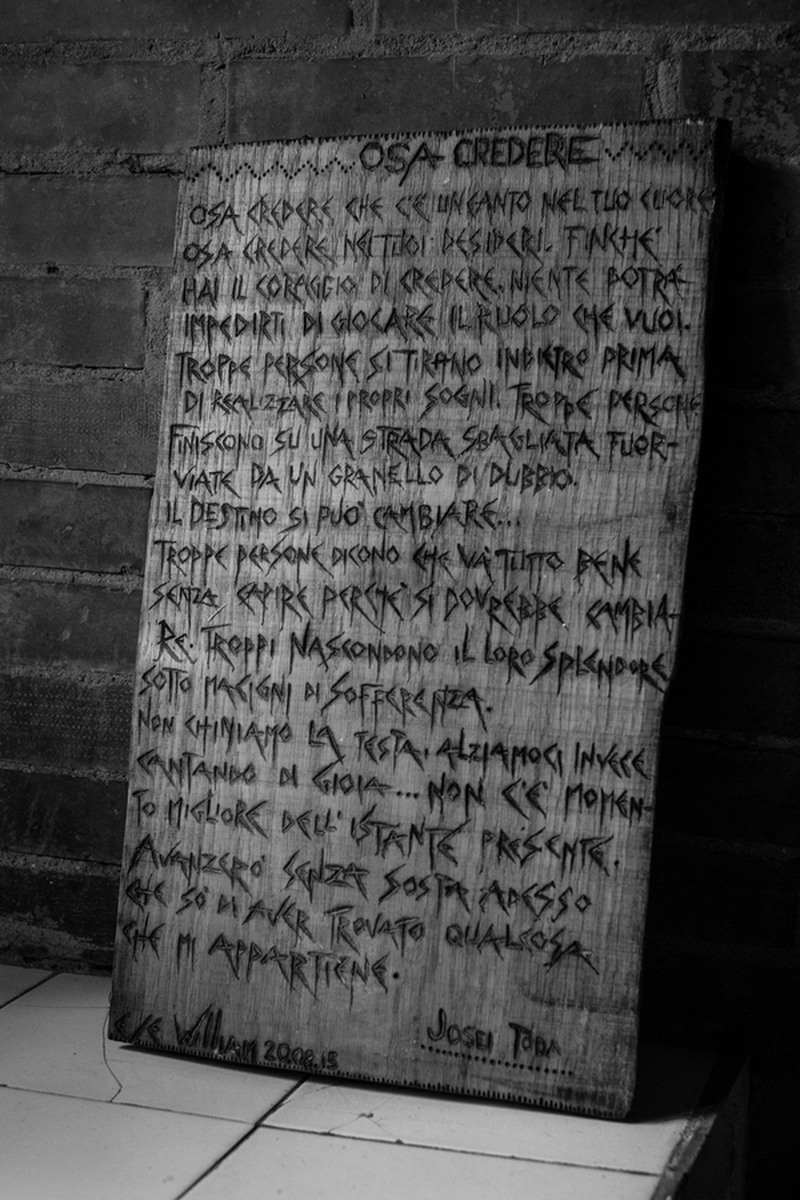 OSA CREDERE
OSA CREDERE CHE C'È UN CANTO NEL TUO CUORE
OSA CREDERE NEI TUOI DESIDERI. FINCHE'
HAI IL CORAGGIO DI CREDERE, NIENTE POTRA-
IMPEDIRTI DI GIOCARE IL RUOLO CHE VUOI.
TROPPE PERSONE SI TIRANO INDIETRO PRIMA
DI REALIZZARE I PROPRI SOGNI. TROPPE PERSONE
FINISCONO SU UNA STRADA SBAGLIATA FUOR-
VIATE DA UN GRANELLO DI DUBBIO.
IL DESTINO SI PUO' CAMBIARE...
TROPPE PERSONE DICONO CHE VA' TUTTO BENE
SENZA CAPIRE PERCHE' SI DOVREBBE CAMBIA-
RE. TROPPI NASCONDONO IL LORO SPLENDORE
SOTTO MACIGNI DI SOFFERENZA.
NON CHINIAMO LA TESTA, ALZIAMOCI INVECE
CANTANDO DI GIOIA... NON C'E' MOMEN-
TO MIGLIORE DELL'ISTANTE PRESENTE.
AVANZERO' SENZA SOSTA ADESSO
CHE SO' DI AVER TROVATO QUALCOSA
CHE MI APPARTIENE.
JOSEI TODA
WILLIAM 20.08.15